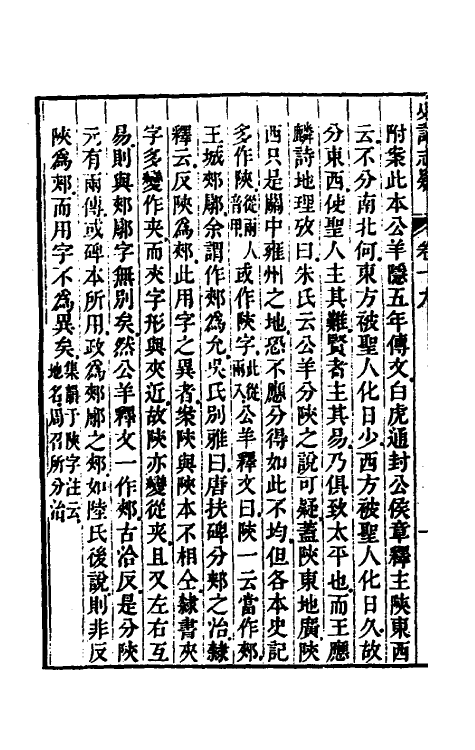 史記志疑 卷十九 一
附案此本公羊隱五年傳文白虎通封公侯章釋主陝東西
云不分南北何東方被聖人化日少西方被聖人化日久故
分東西使聖人主其難賢者主其易乃俱致太平也而王應
麟詩地理攷曰朱氏云公羊分陝之說可疑蓋陝東地廣陝
西只是關中雍州之地恐不應分得如此不均但各本史記
多作陝從兩人音甲或作陝字此從兩入公羊釋文曰陝一云當作郟
王城郟鄏余謂作郟爲允吳氏別雅曰唐扶碑分郟之治隸
釋云反陝爲郟此用字之異者案陝與陝本不相仝隸書夾
字多變作夹而夾字形與夾近故陝亦變從夹且又左右互
易則與郟鄏字無別矣然公羊釋文一作郟古洽反是分陝
元有兩傳或碑本所用政爲郟鄏之郟如陸氏後說則非反
陝爲郟而用字不爲異矣集韻于陝字注云地名周召所分治